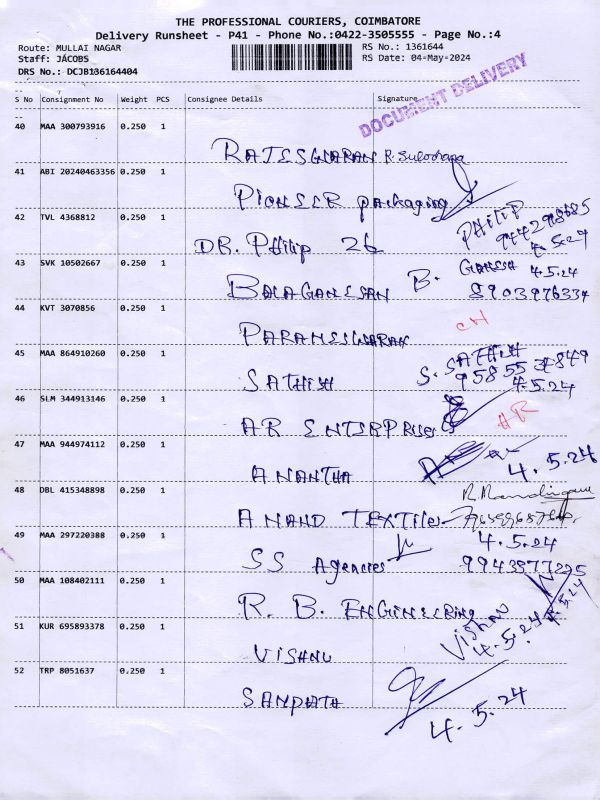 THE PROFESSIONAL COURIERS, COIMBATORE
Delivery Runsheet - P41 - Phone No.:0422-3505555 - Page No.:4
Route: MULLAI NAGAR
RS No.: 1361644
Staff: JACOBS
RS Date: 04-May-2024
DRS No.: DCJB136164404
DOCUMENT DELIVERY
S No Consignment No Weight PCS Consignee Details Signature
40 MAA 300793916 0.250 1
RAJESWARAN R. Sulochana
41 ABI 20240463356 0.250 1
PIONEER Packaging
42 TVL 4368812 0.250 1
PHILIP
4.5.24
DR. Philip 26
43 SVK 10502667 0.250 1
BALAGANESAN B. GANESH 4.5.24
8903976334
44 KVT 3070856 0.250 1
CH
PARAMESWARAN
45 MAA 864910260 0.250 1
S. SATHISH
95855 34849
SATHISH 4.5.24
46 SLM 344913146 0.250 1
AR
AR ENTERPRISES
47 MAA 944974112 0.250 1
4.5.24
ANANTHA
48 DBL 415348898 0.250 1
ANAND TEXTILES
49 MAA 297220388 0.250 1
4.5.24
SS Agencies 9943577225
50 MAA 108402111 0.250 1
R. B. ENGINEERING
4.5.24
51 KUR 695893378 0.250 1
VISHNU
4.5.24
VISHNU
52 TRP 8051637 0.250 1
SAMPATH
4.5.24